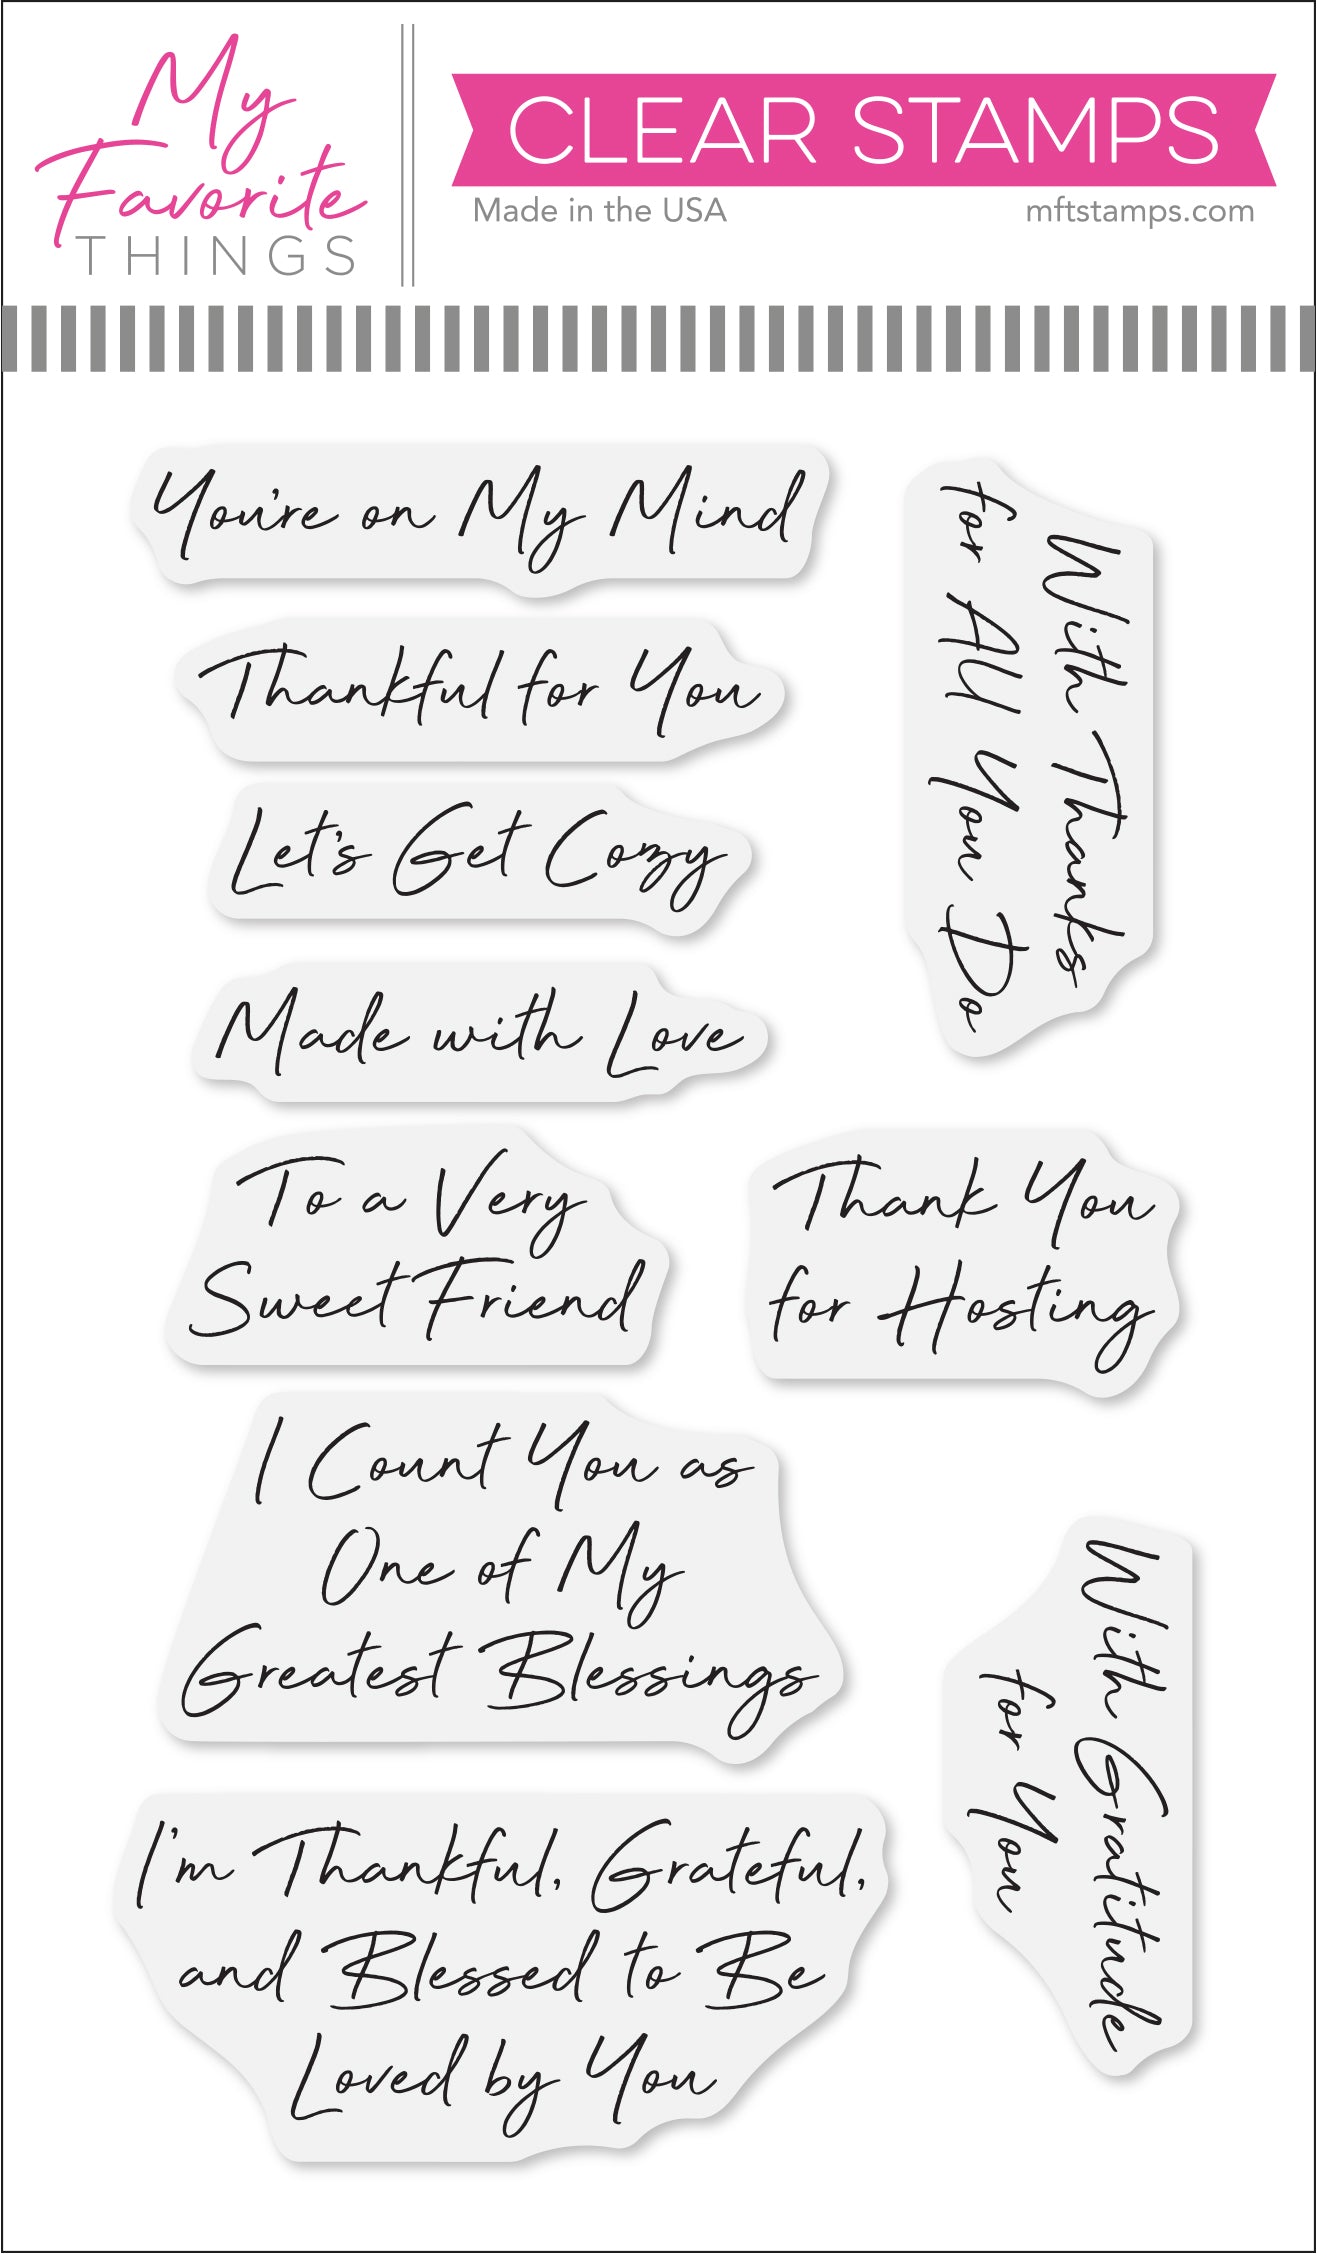 My
Favorite
THINGS
CLEAR STAMPS
Made in the USA
mftstamps.com
You're on My Mind
Thankful for You
Let's Get Cozy
Made with Love
With Thanks
for All You Do
To a Very
Sweet Friend
Thank You
for Hosting
I Count You as
One of My
Greatest Blessings
With Gratitude
for You
I'm Thankful, Grateful,
and Blessed to Be
Loved by You